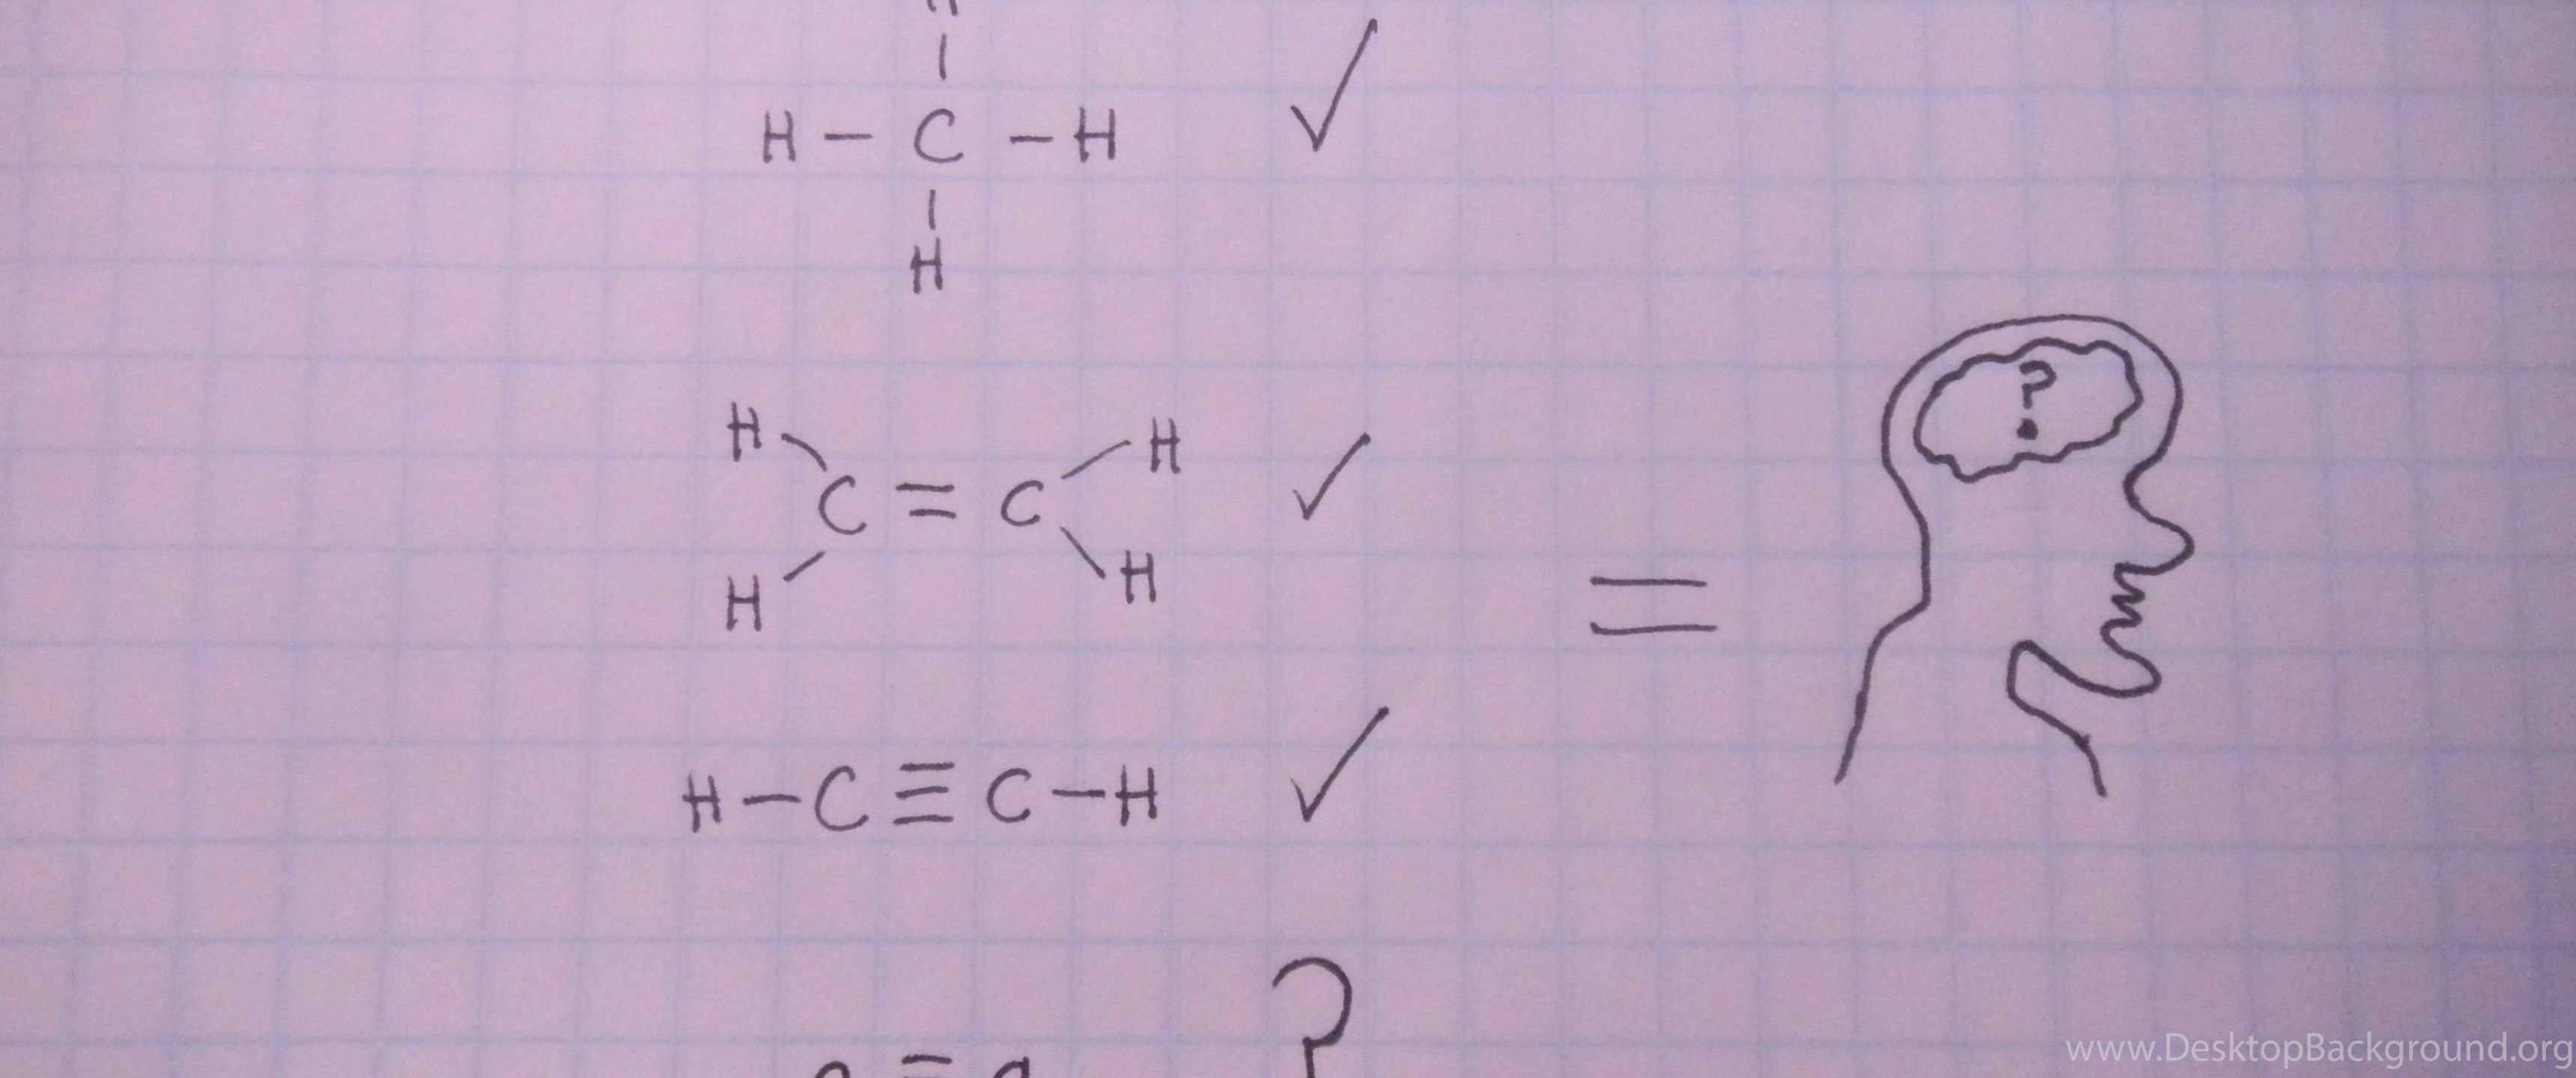 H
H – C – H
H
H H
C = C
H H
H – C ≡ C – H
?
=
?
www.DesktopBackground.org